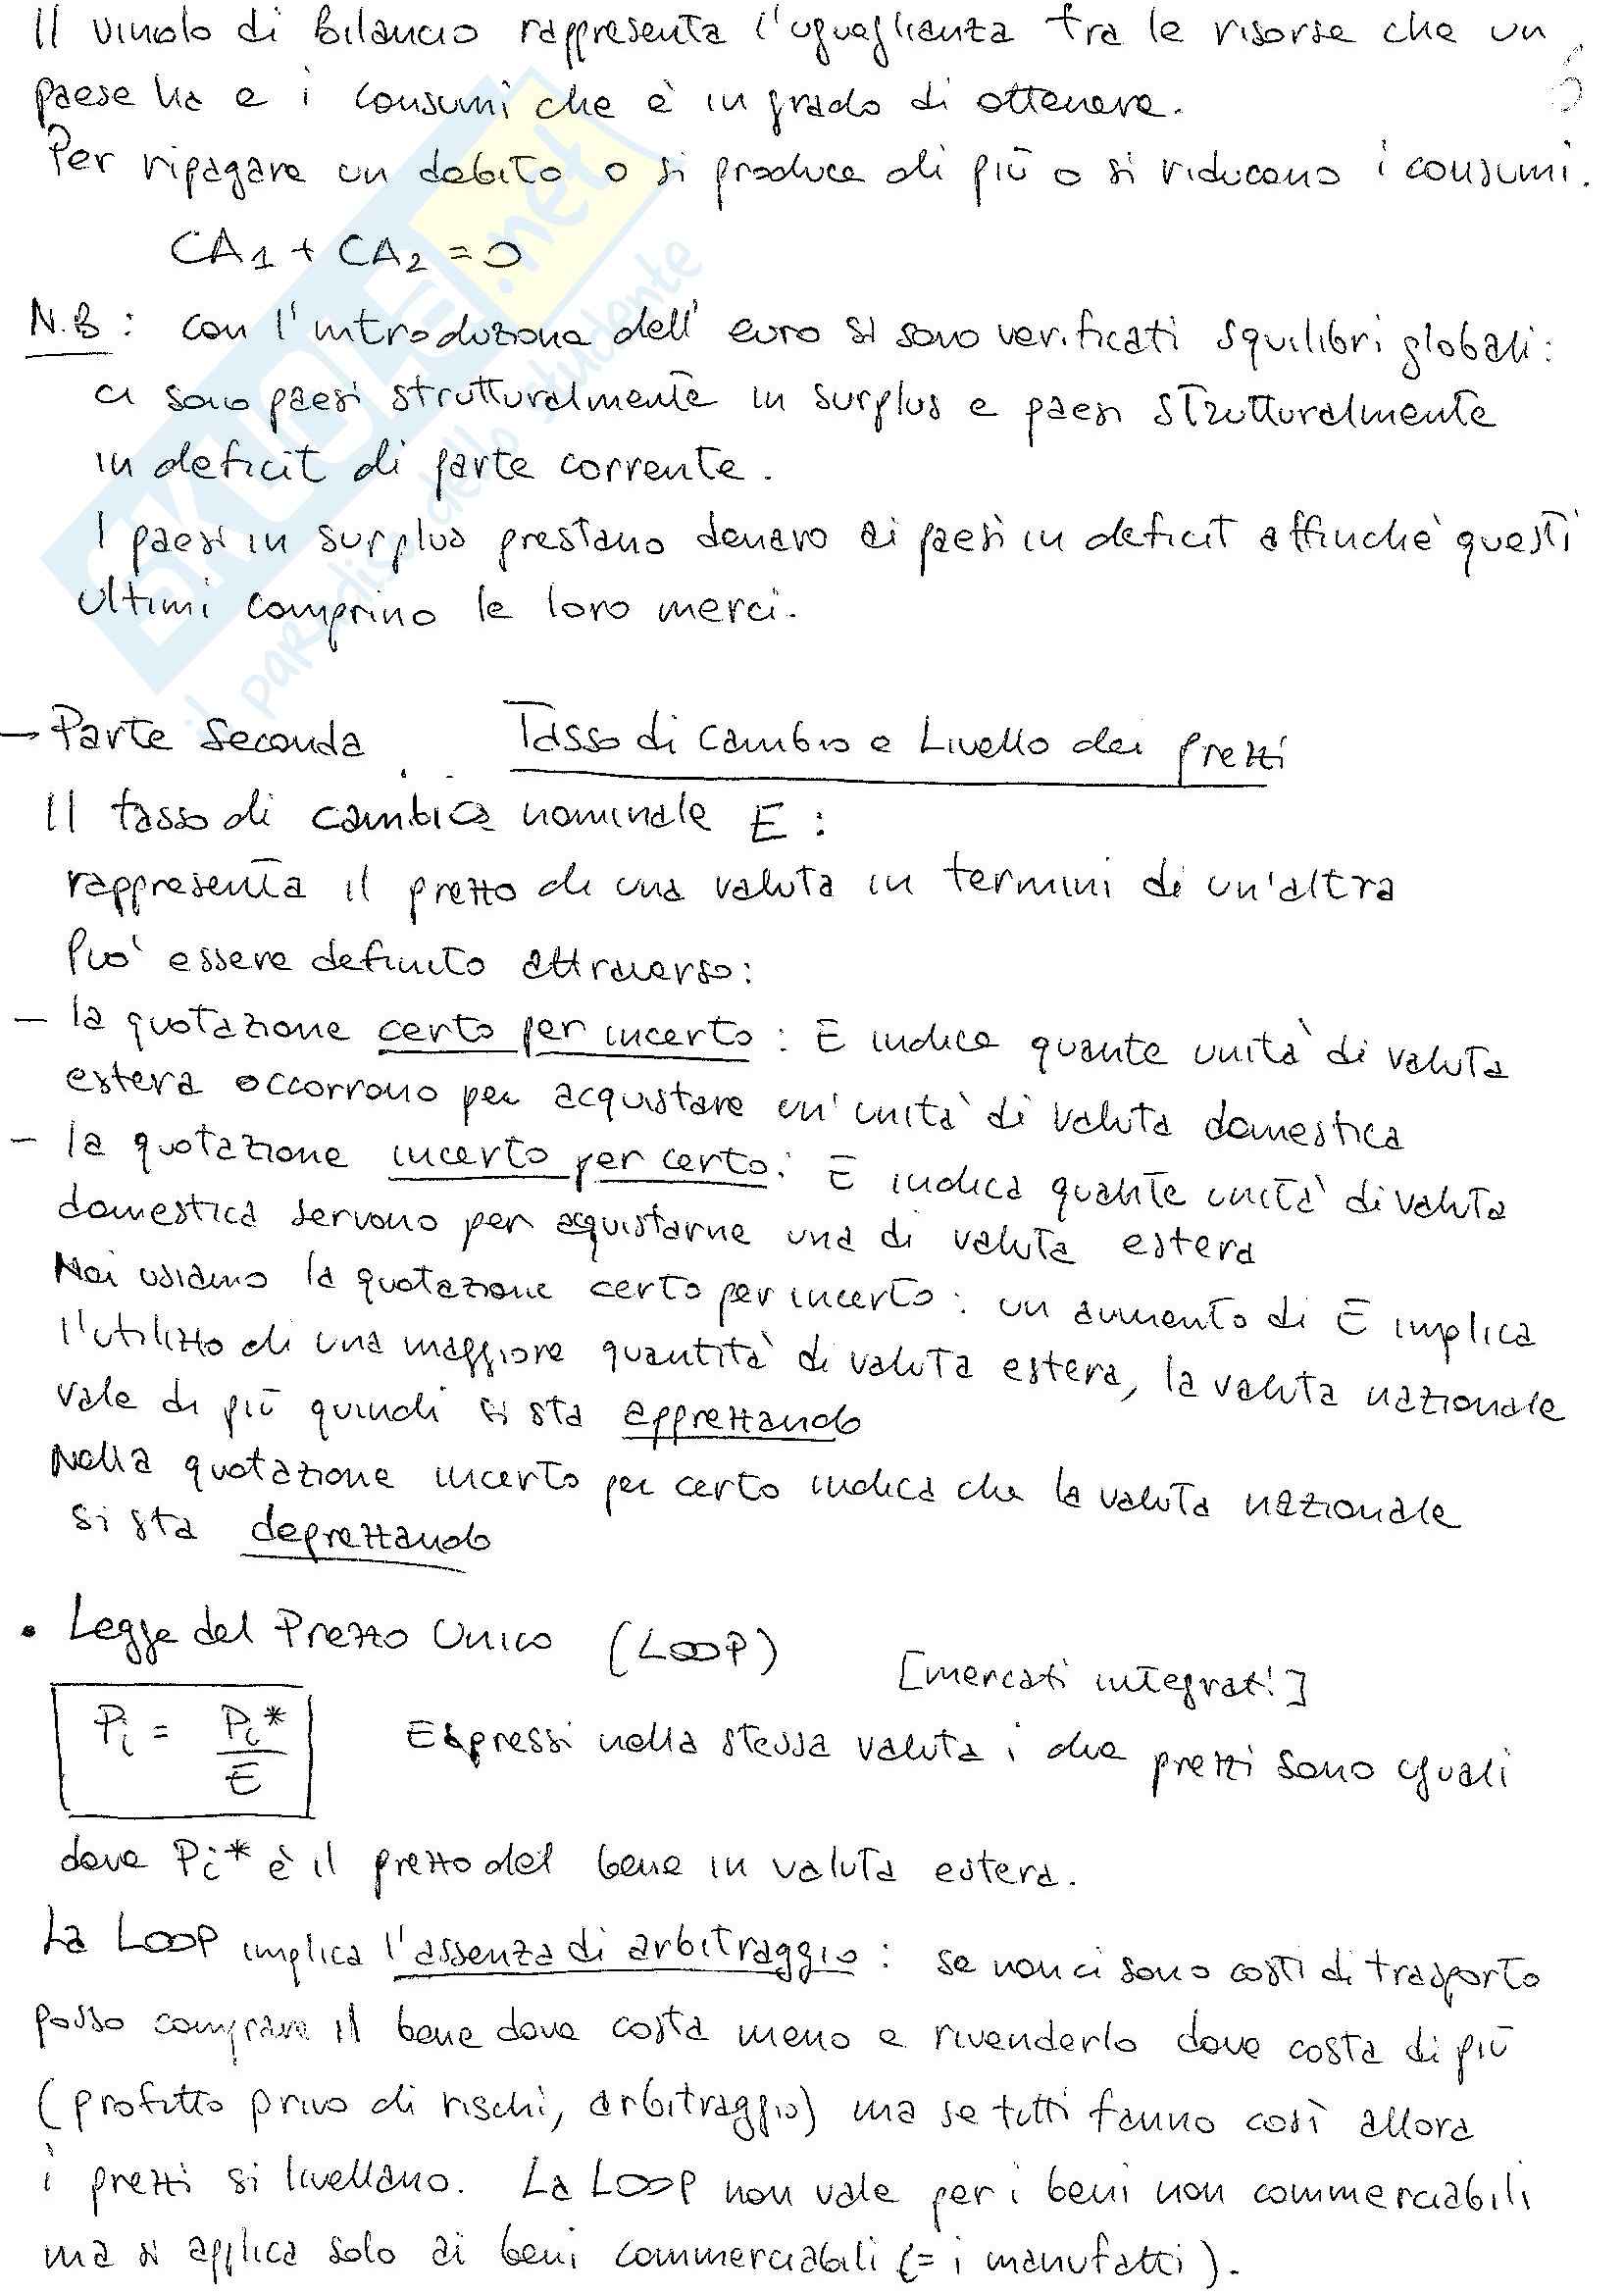 Il vincolo di bilancio rappresenta l'uguaglianza tra le risorse che un
paese ha e i consumi che è in grado di ottenere.
Per ripagare un debito o si produce di più o si riducono i consumi.
CA1 + CA2 = 0
N.B: con l'introduzione dell'euro si sono verificati squilibri globali:
ci sono paesi strutturalmente in surplus e paesi strutturalmente
in deficit di parte corrente.
I paesi in surplus prestano denaro ai paesi in deficit affinchè questi
ultimi comprino le loro merci.
- Parte Seconda Tasso di Cambio e Livello dei prezzi
Il tasso di cambio nominale E:
rappresenta il prezzo di una valuta in termini di un'altra
Può essere definito attraverso:
- la quotazione certo per incerto: E indica quante unità di valuta
estera occorrono per acquistare un'unità di valuta domestica
- la quotazione incerto per certo: E indica quante unità di valuta
domestica servono per acquistarne una di valuta estera
Noi usiamo la quotazione certo per incerto: un aumento di E implica
l'utilizzo di una maggiore quantità di valuta estera, la valuta nazionale
vale di più quindi si sta apprezzando
Nella quotazione incerto per certo indica che la valuta nazionale
si sta deprezzando
• Legge del Prezzo Unico (LOOP) [mercati integrati]
Pi = Pi* / E Espressi nella stessa valuta i due prezzi sono uguali
dove Pi* è il prezzo del bene in valuta estera.
La LOOP implica l'assenza di arbitraggio: se non ci sono costi di trasporto
posso comprare il bene dove costa meno e rivenderlo dove costa di più
(profitto privo di rischi, arbitraggio) ma se tutti fanno così allora
i prezzi si livellano. La LOOP non vale per i beni non commerciabili
ma si applica solo ai beni commerciabili (= i manufatti).
SKUOLA.net
il paradiso dello studente